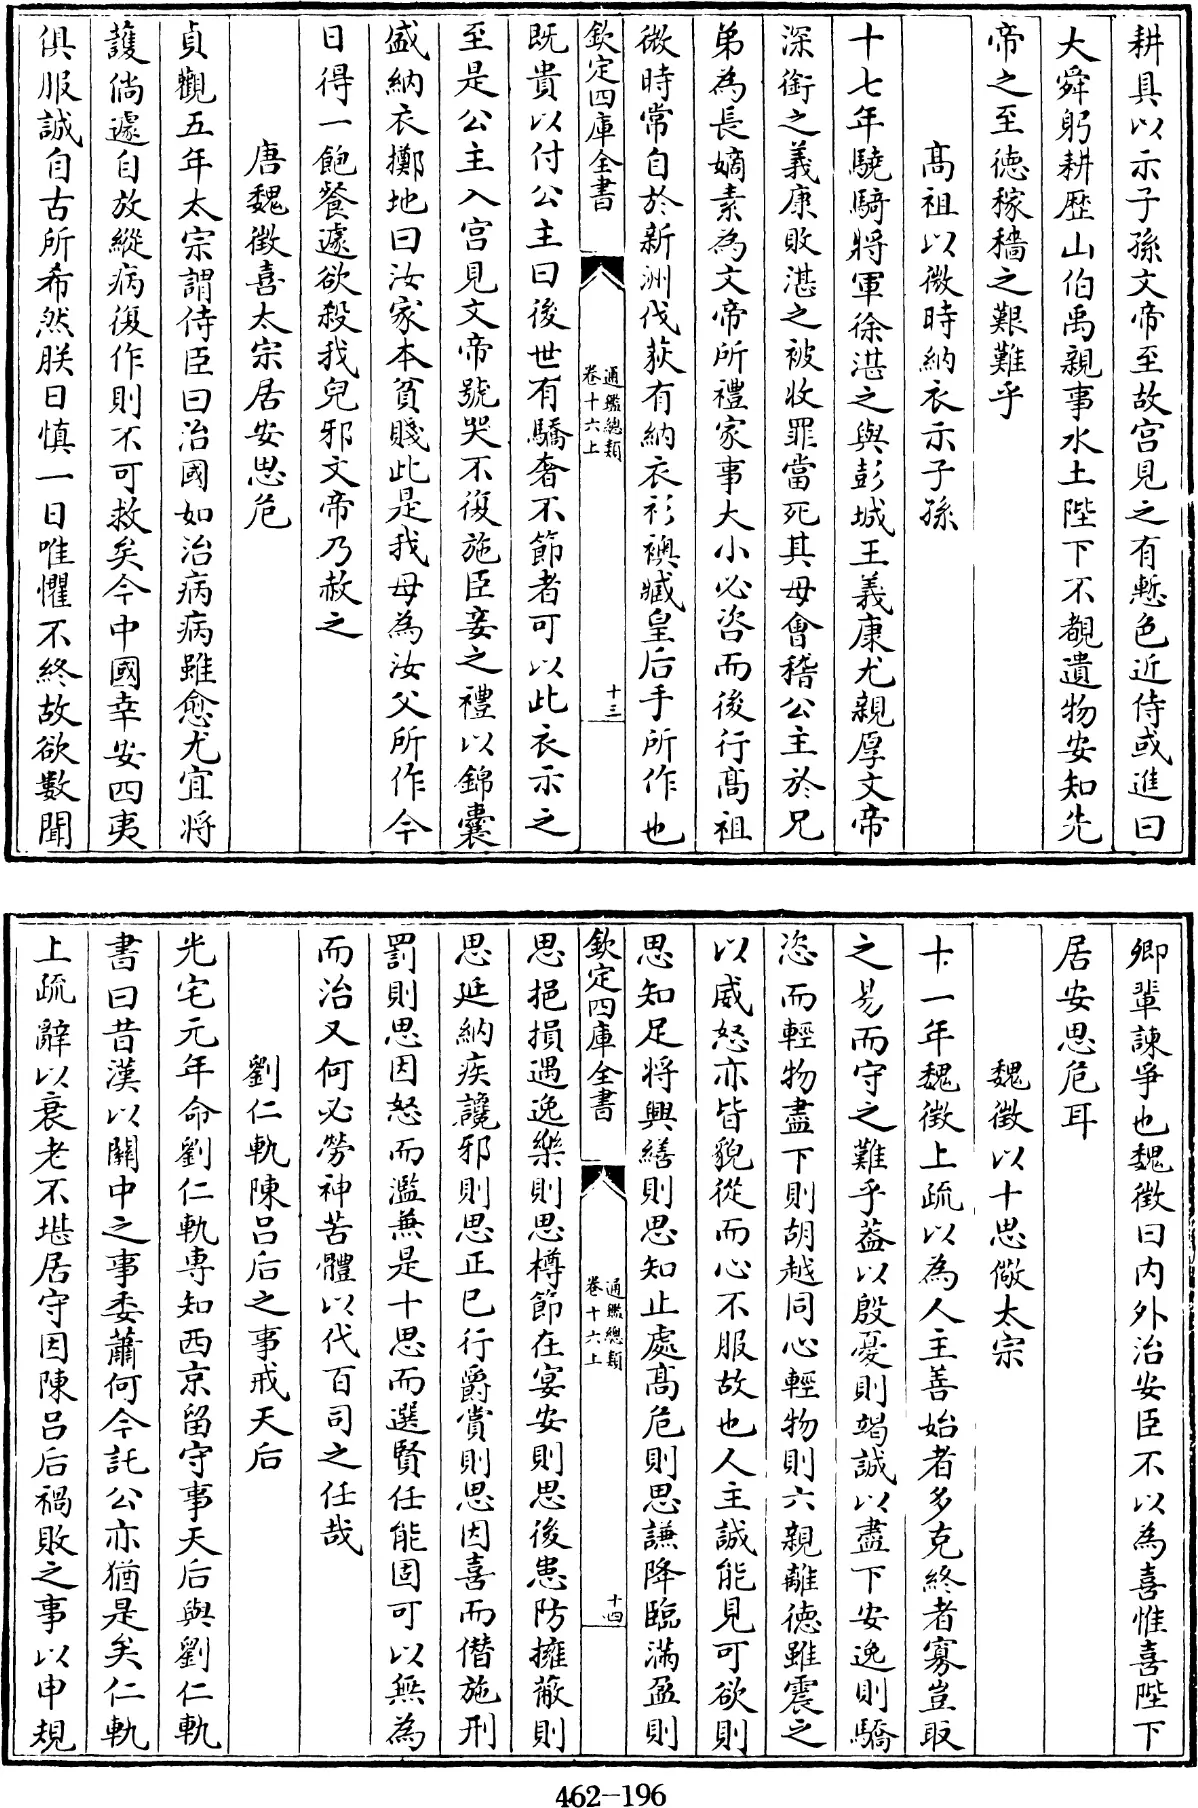 耕具以示子孫文帝至故宮見之有慙色近侍或進曰
大舜躬耕歴山伯禹親事水土陛下不覩遺物安知先
帝之至徳稼穡之艱難乎
髙祖以微時納衣示子孫
十七年驍騎將軍徐湛之與彭城王義康尤親厚文帝
深銜之義康敗湛之被收罪當死其母㑹稽公主於兄
弟為長嫡素為文帝所禮家事大小必咨而後行髙祖
微時常自於新洲伐荻有納衣衫襖臧皇后手所作也
欽定四庫全書
通鑑總類
卷十六上
十三
既貴以付公主曰後世有驕奢不節者可以此衣示之
至是公主入宮見文帝號哭不復施臣妾之禮以錦囊
盛納衣擲地曰汝家本貧賤此是我母為汝父所作今
日得一飽餐遽欲殺我兒邪文帝乃赦之
唐魏徵喜太宗居安思危
貞觀五年太宗謂侍臣曰治國如治病病雖愈尤宜將
護倘遽自放縱病復作則不可救矣今中國幸安四夷
俱服誠自古所希然朕日慎一日唯懼不終故欲數聞
卿輩諫爭也魏徵曰内外治安臣不以為喜惟喜陛下
居安思危耳
魏徵以十思儆太宗
十一年魏徵上疏以為人主善始者多克終者寡豈取
之易而守之難乎葢以殷憂則竭誠以盡下安逸則驕
恣而輕物盡下則胡越同心輕物則六親離徳雖震之
以威怒亦皆貌從而心不服故也人主誠能見可欲則
思知足將興繕則思知止處髙危則思謙降臨滿盈則
欽定四庫全書
通鑑總類
卷十六上
十四
思挹損遇逸樂則思樽節在宴安則思後患防擁蔽則
思延納疾讒邪則思正已行爵賞則思因喜而僭施刑
罰則思因怒而濫兼是十思而選賢任能固可以無為
而治又何必勞神苦體以代百司之任哉
劉仁軌陳吕后之事戒天后
光宅元年命劉仁軌専知西京留守事天后與劉仁軌
書曰昔漢以關中之事委蕭何今託公亦猶是矣仁軌
上疏辭以衰老不堪居守因陳吕后禍敗之事以申規
462-196